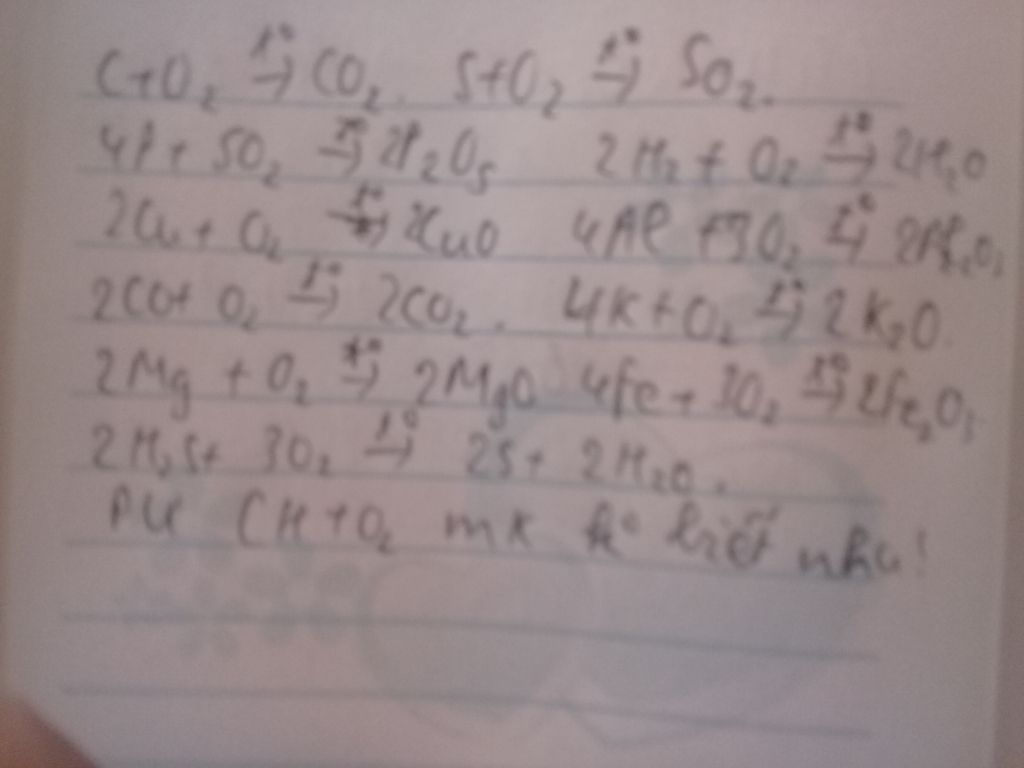 C+O₂ →t° CO₂. S+O₂ →t° SO₂.
4P + 5O₂ →t° 2P₂O₅ 2H₂ + O₂ →t° 2H₂O
2Cu + O₂ →t° 2CuO 4Al +3O₂ →t° 2Al₂O₃
2CO+ O₂ →t° 2CO₂. 4K+O₂ →t° 2K₂O.
2Mg + O₂ →t° 2MgO 4Fe + 3O₂ →t° 2Fe₂O₃
2H₂S+ 3O₂ →t° 2S+ 2H₂O.
PU CH+O₂ mk ko biết nha!